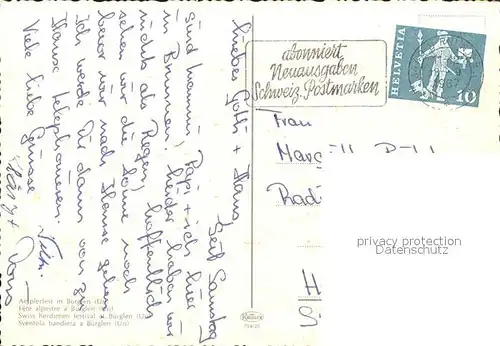 Liebes Gotti + Hans
Seit Samstag
sind Mammi, Papi + ich hier
in Brunnen. Leider haben wir
nichts als Regen, hoffentlich
sehen wir die Sonne noch
bevor wir nach Hause gehen.
Ich werde Dir dann von zu
Hause telephonieren.
Viele liebe Grüsse
abonniert
Neuausgaben
Schweiz. Postmarken
HELVETIA
10
Frau
privacy protection
Datenschutz
Aelplerfest in Bürglen (Uri)
Fête alpestre à Bürglen (Uri)
Swiss Herdsmen festival at Bürglen (Uri)
Sventola bandiera a Bürglen (Uri)